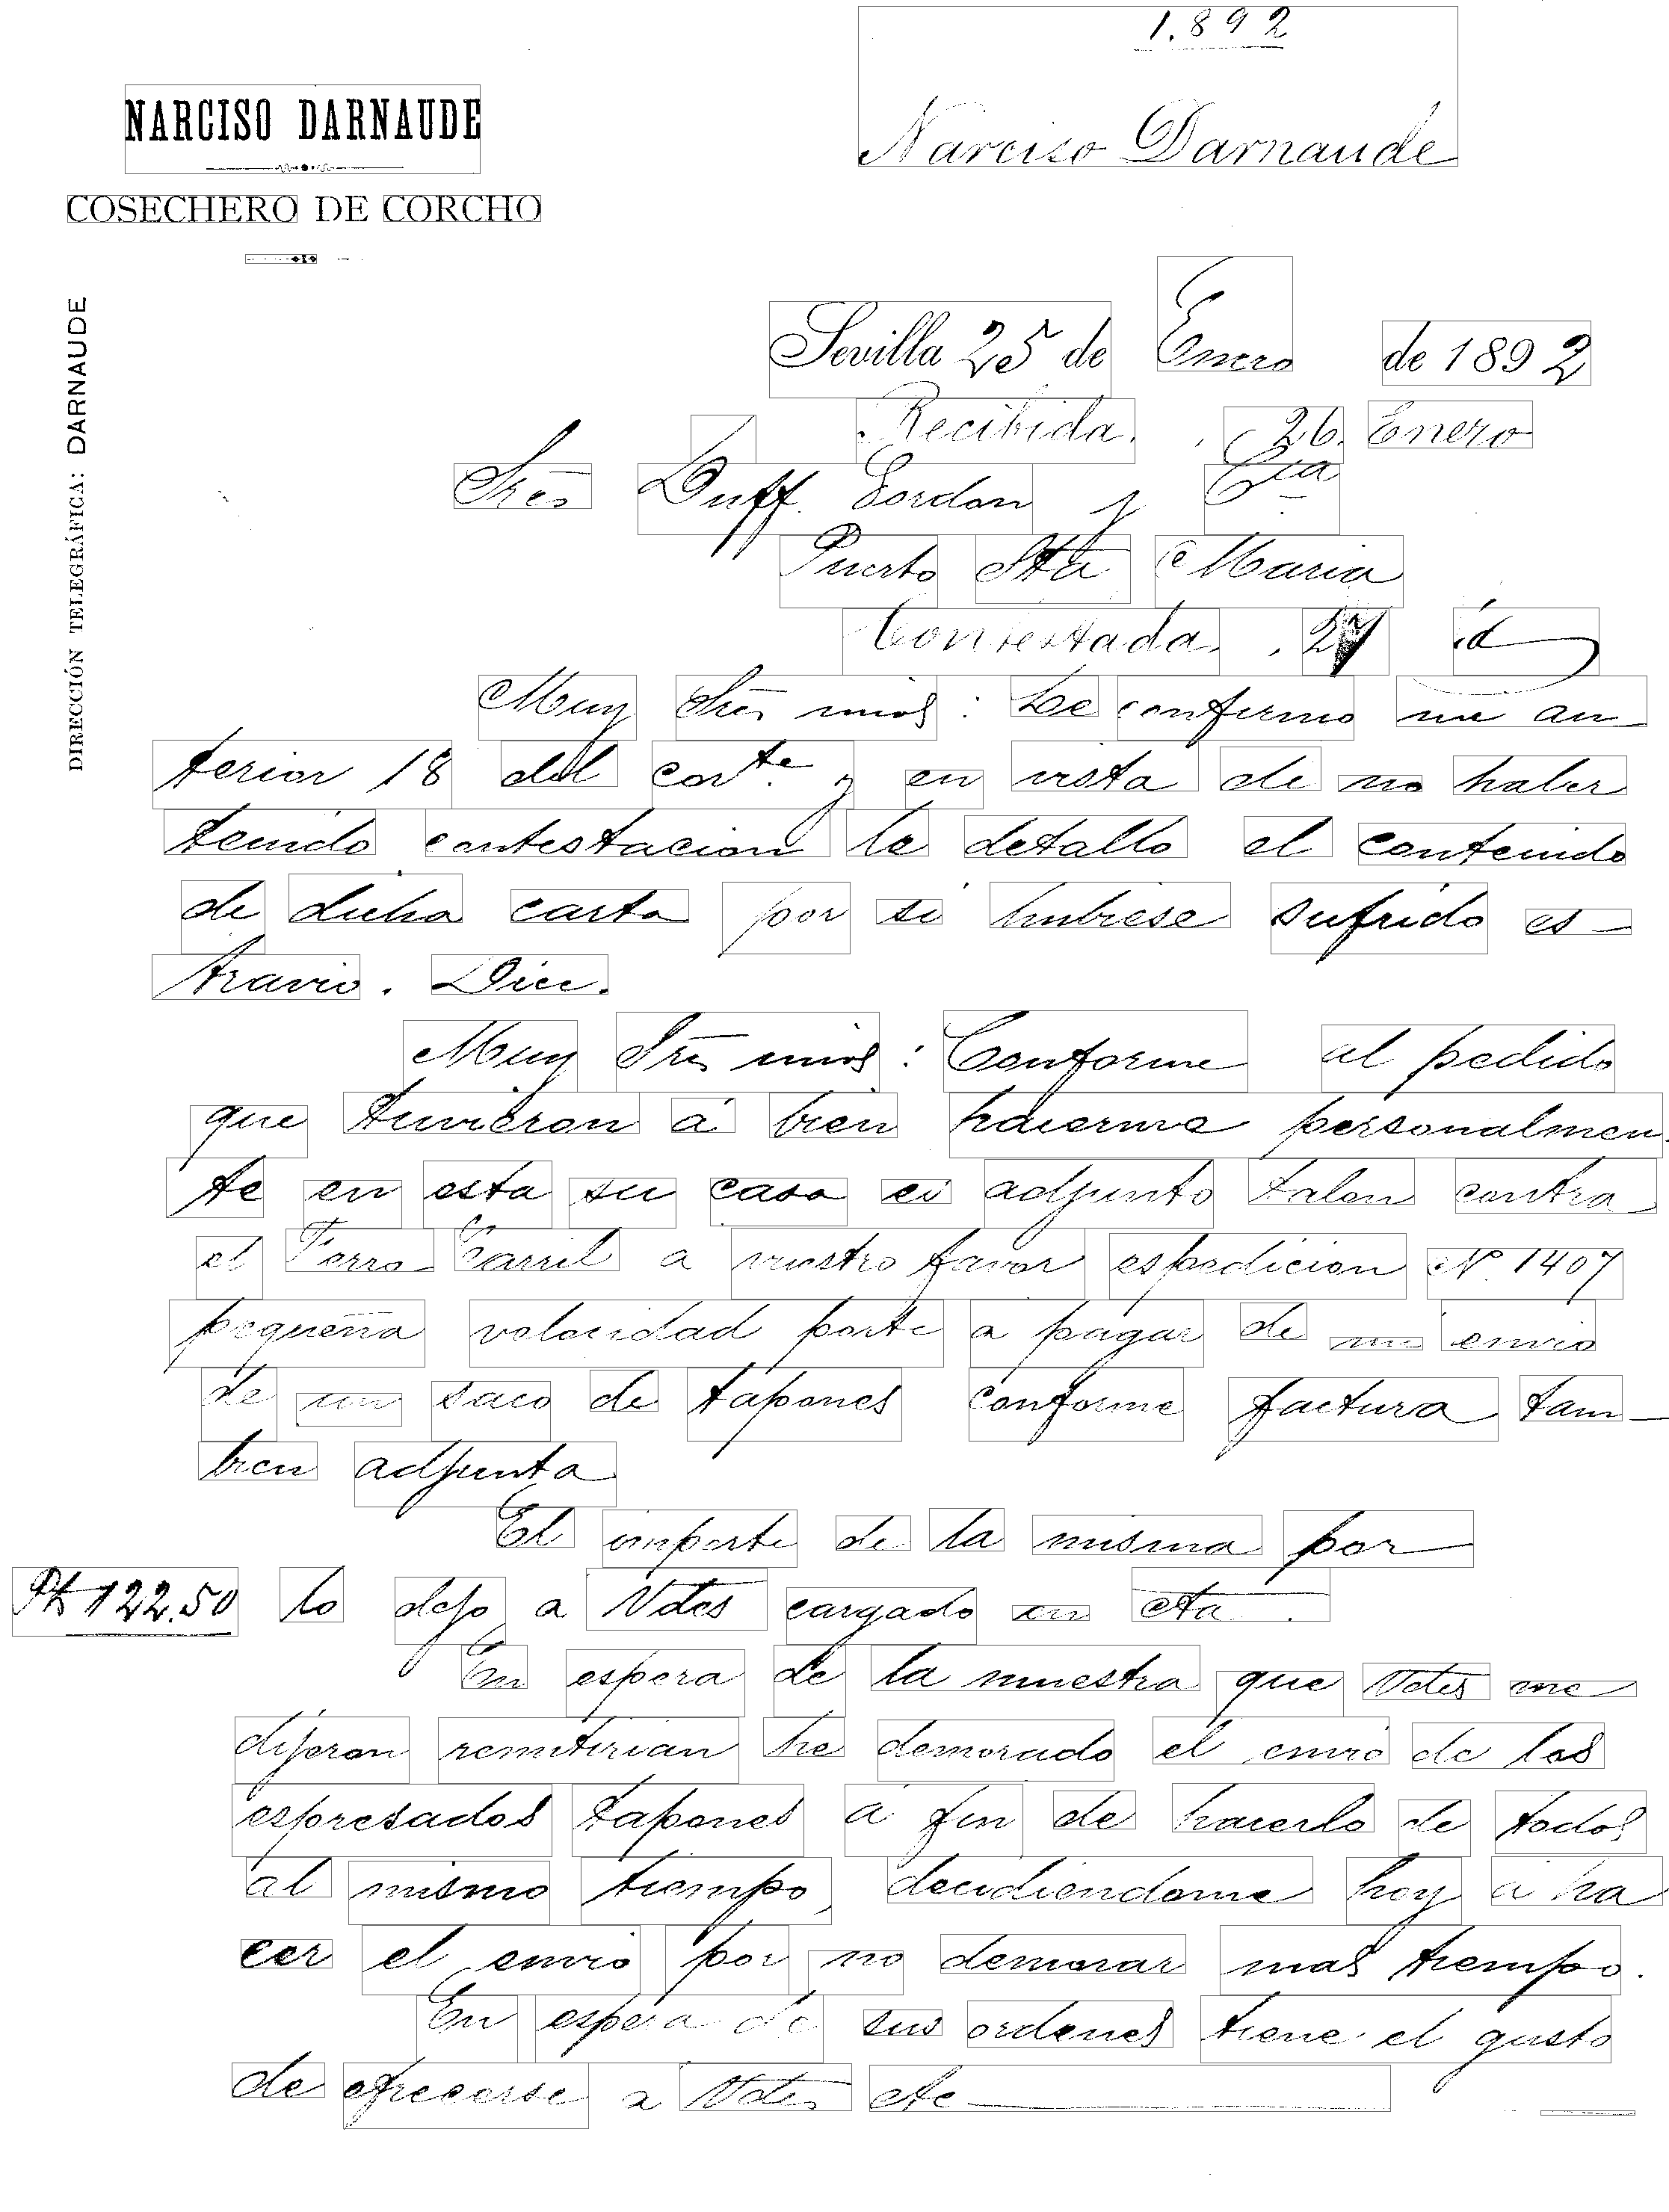 1.892
Narciso Darnaude
NARCISO DARNAUDE
COSECHERO DE CORCHO
DIRECCIÓN TELEGRÁFICA: DARNAUDE
Sevilla 25 de Enero de 1892
Recibida. 26. Enero
Sres Duff Gordon y Cia
Puerto Sta Maria
Contestada. 27 id
Muy Sres mios: Le confirmo mi an
terior 18 del corte. y en vista de no haber
tenido contestacion le detallo el contenido
de dicha carta por si hubiese sufrido es-
travio. Dice.
Muy Sres mios: Conforme al pedido
que tuvieron á bien hacerme personalmen-
te en esta su casa es adjunto talon contra
el Ferro-Carril a vuestro favor espedicion Nº 1407
pequeña velocidad porte a pagar de mi envio
de un saco de tapones conforme factura tam-
bien adjunta
El importe de la misma por
Pts 122.50 lo dejo a Vdes cargado en cta.
En espera de la muestra que Vdes me
dijeron remitirian he demorado el envio de los
espresados tapones á fin de hacerlo de todos
al mismo tiempo, decidiendome hoy á ha
cer el envio por no demorar mas tiempo.
En espera de sus ordenes tiene el gusto
de ofrecerse a Vdes etc